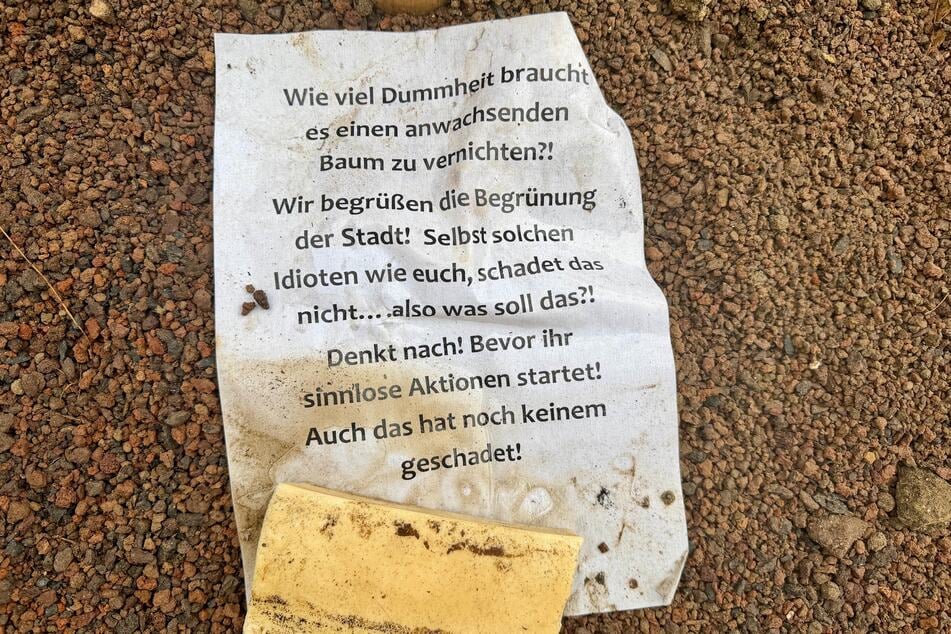 Wie viel Dummheit braucht
es einen anwachsenden
Baum zu vernichten?!
Wir begrüßen die Begrünung
der Stadt! Selbst solchen
Idioten wie euch, schadet das
nicht.... also was soll das?!
Denkt nach! Bevor ihr
sinnlose Aktionen startet!
Auch das hat noch keinem
geschadet!